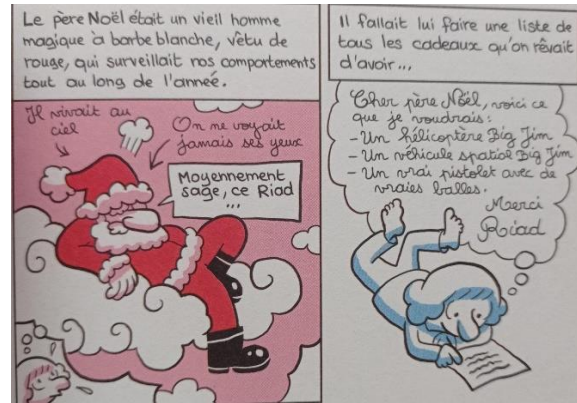 Le père Noël était un vieil homme
magique à barbe blanche, vêtu de
rouge, qui surveillait nos comportements
tout au long de l'année.
Il vivait au
ciel
On ne voyait
jamais ses yeux
Moyennement
sage, ce Riad
...
Il fallait lui faire une liste de
tous les cadeaux qu'on rêvait
d'avoir...
Cher père Nöel, voici ce
que je voudrais:
- Un hélicoptère Big Jim
- Un véhicule spatial Big Jim
- Un vrai pistolet avec de
vraies balles.
Merci
Riad